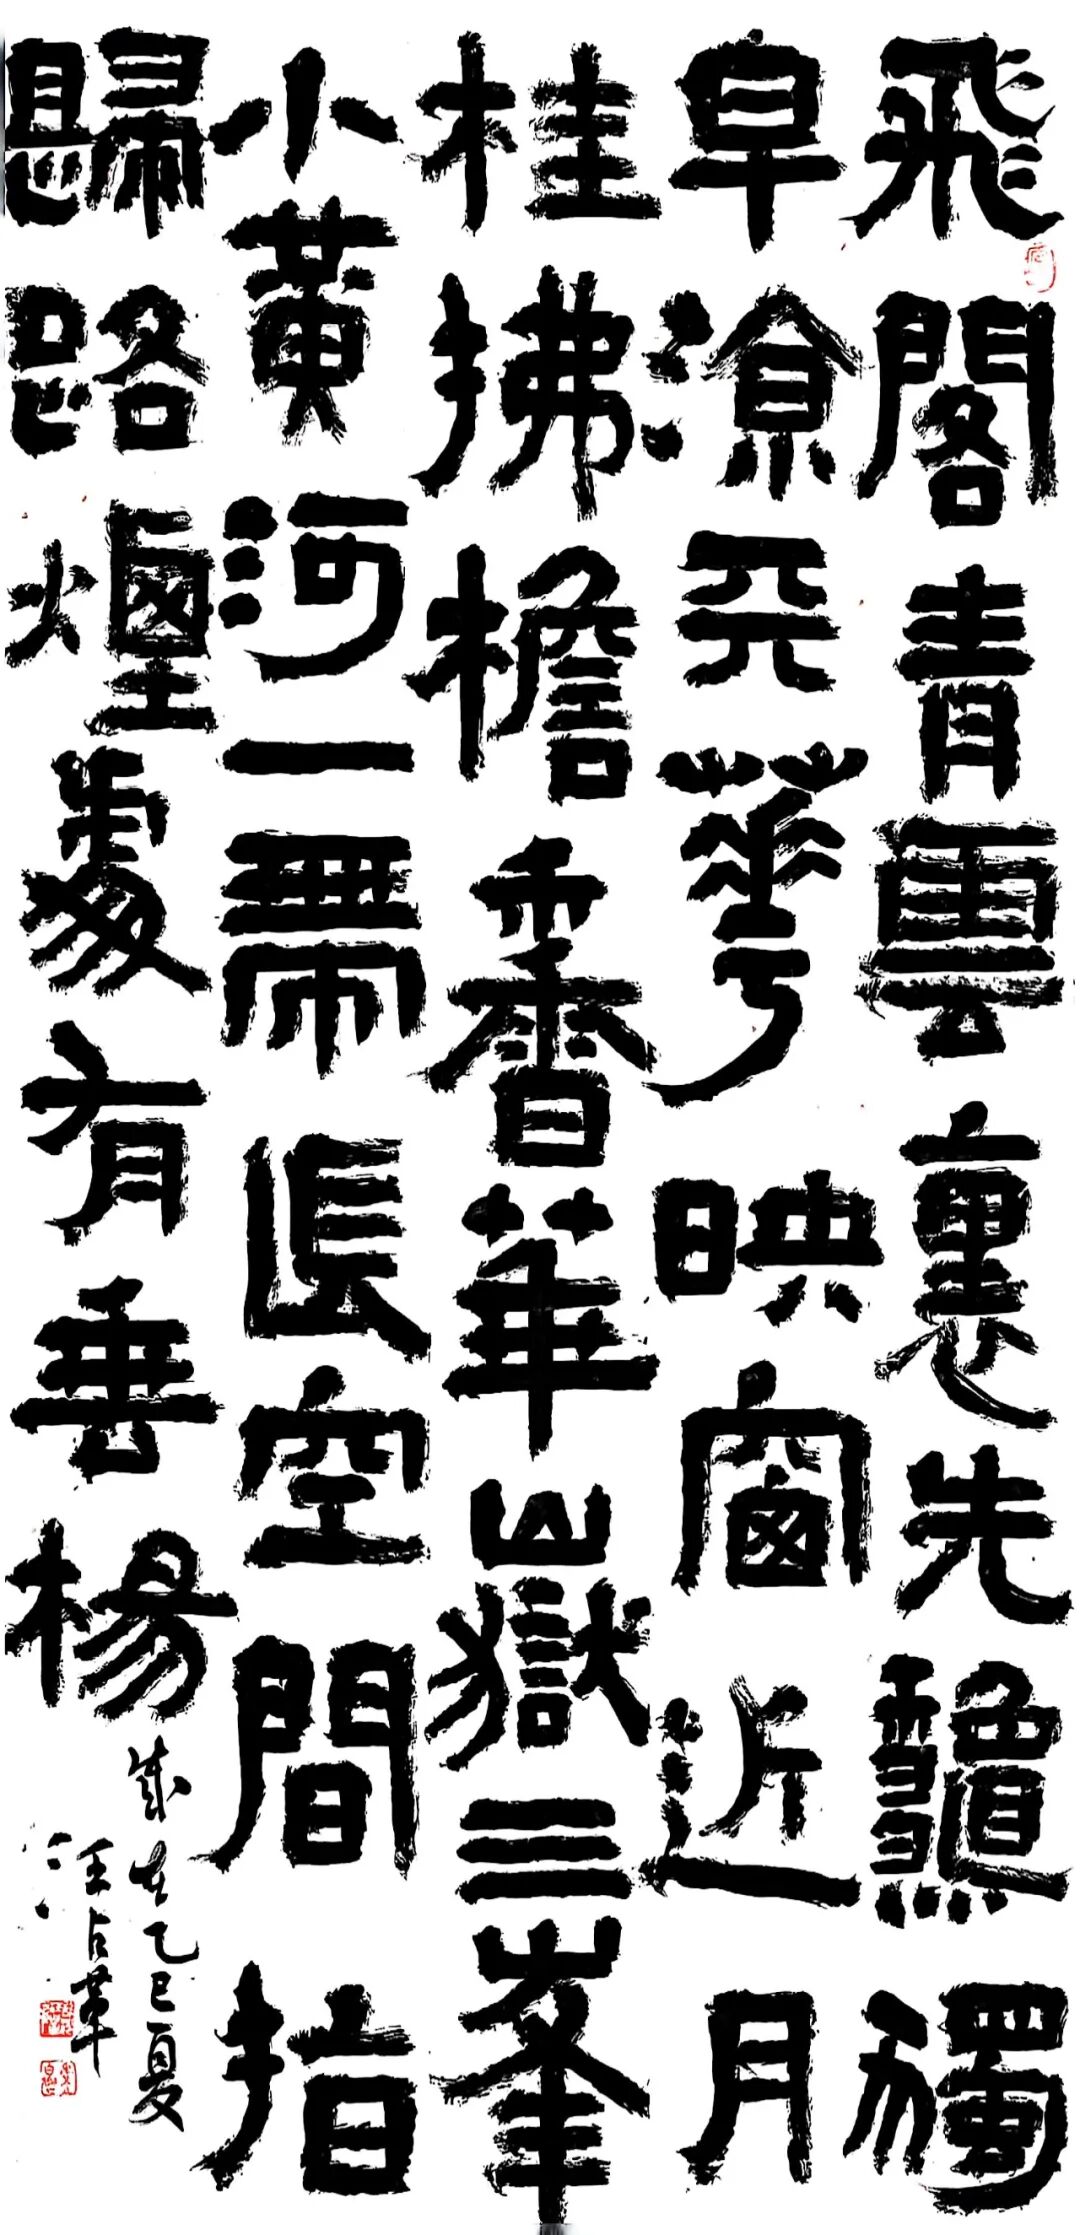 飛閣青雲裏先龝獨
早涼天華映窗近月
桂拂檐香華嶽三峯
小黄河一帶長空間指
歸路煙處有垂楊
歲在乙巳夏
汪占革